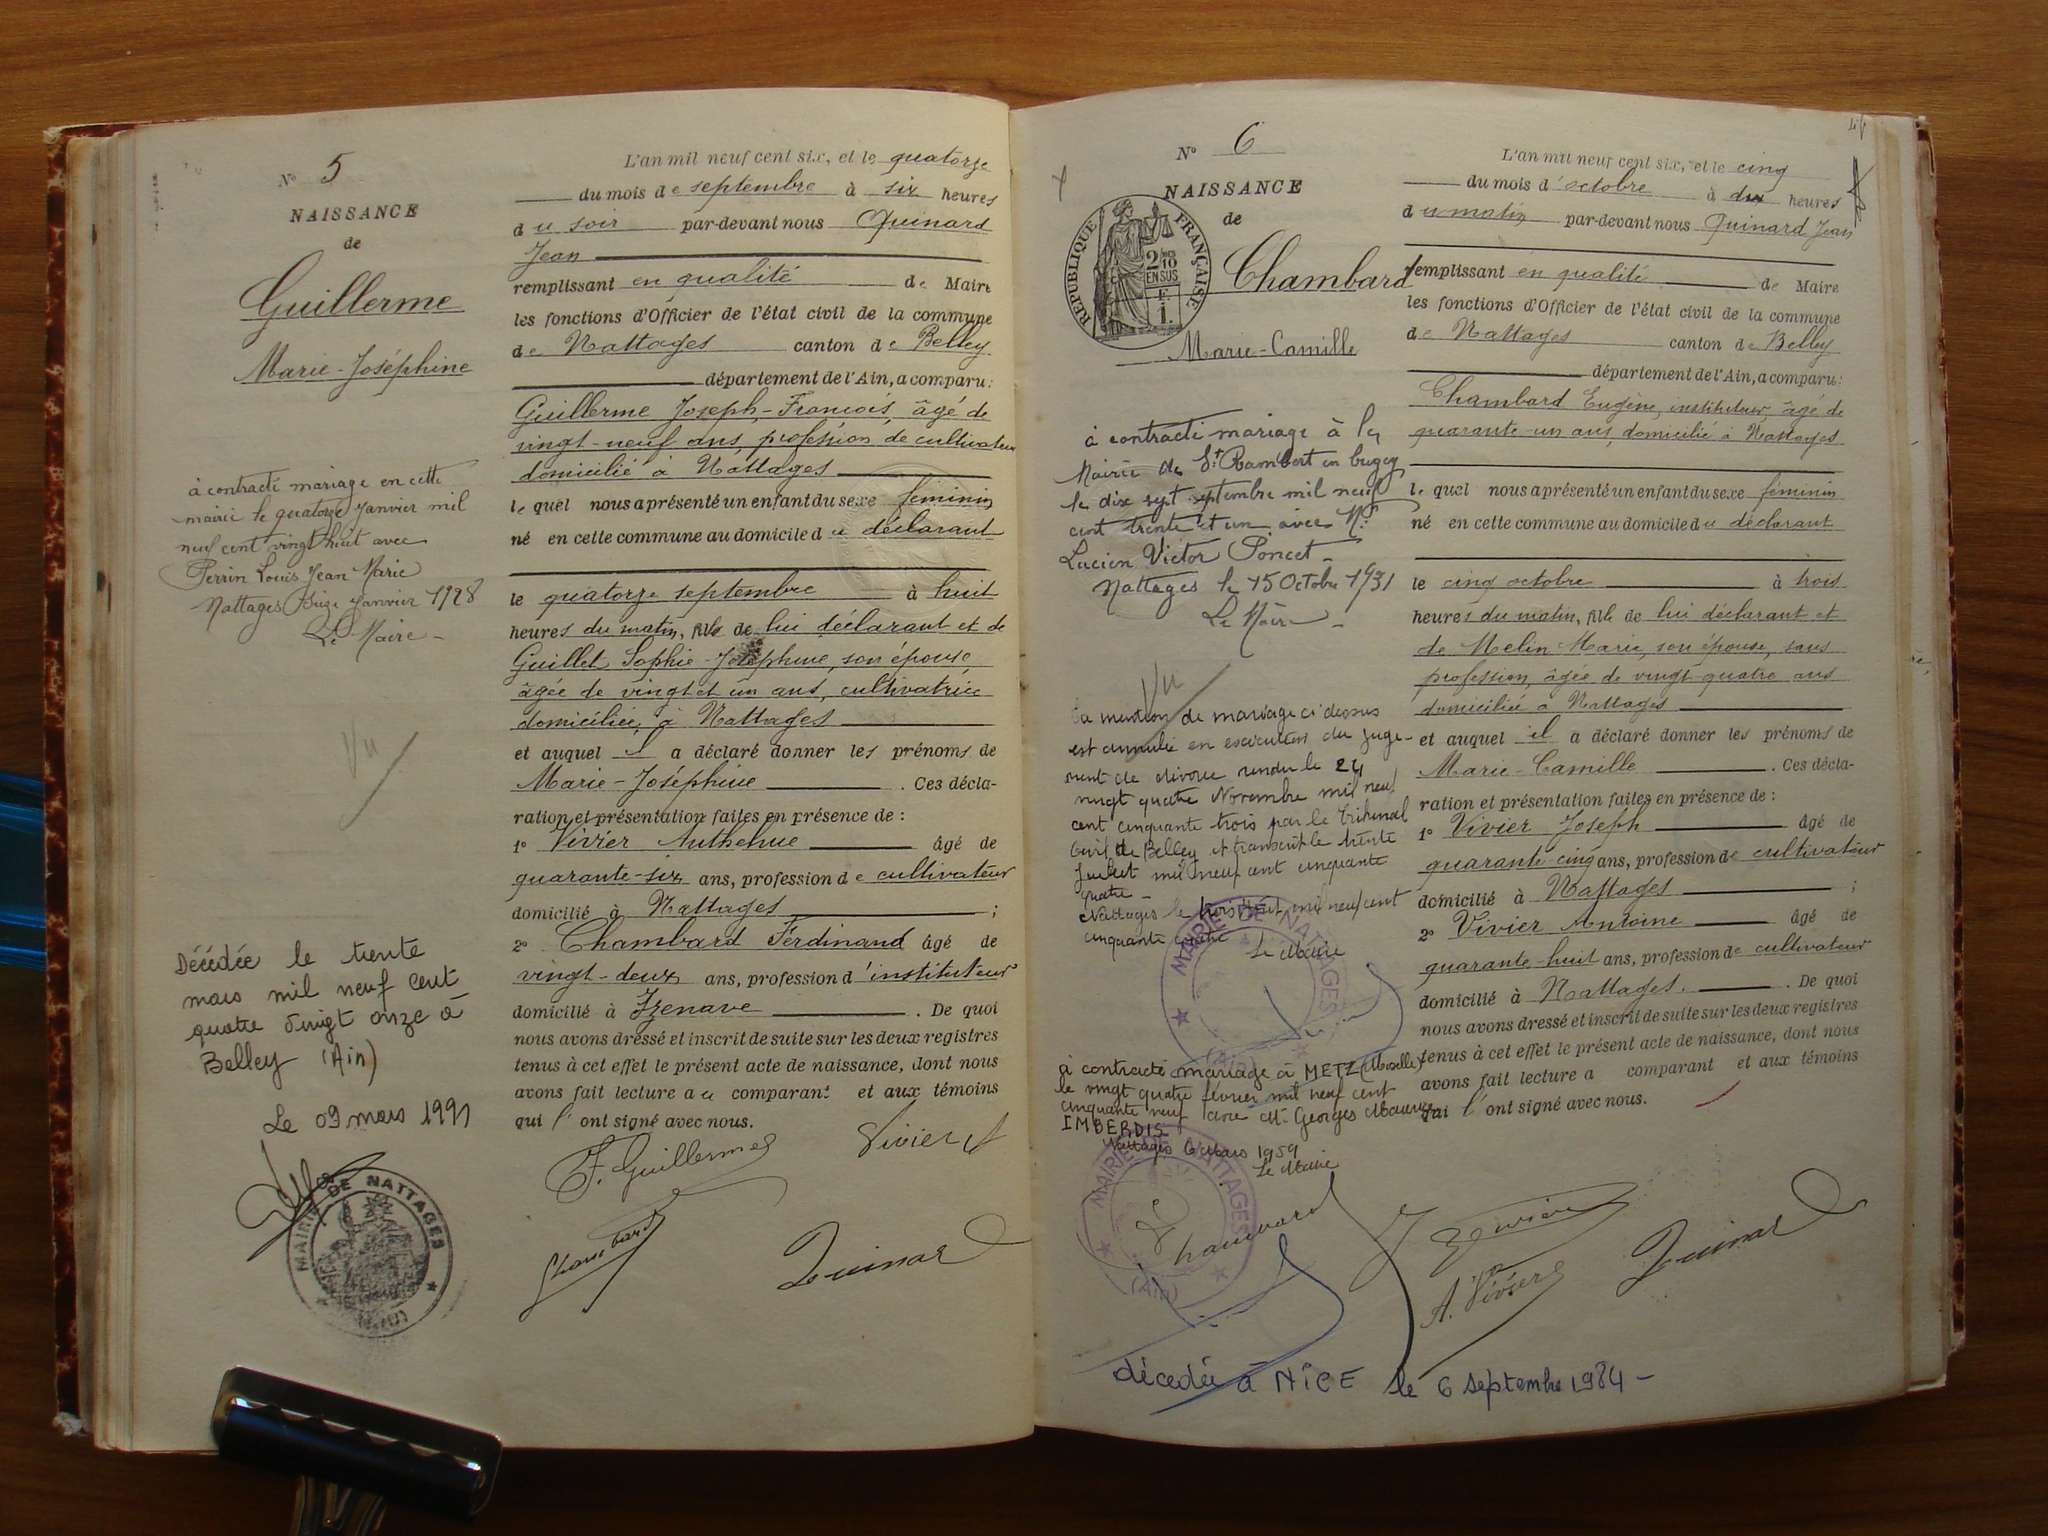 N° 5
NAISSANCE
de
Guillerme
Marie-Joséphine
à contracté mariage en cette
mairie le quatorze janvier mil
neuf cent vingt huit avec
Perrin Louis Jean Marie
Nattages janvier 1928
Le Maire
Vu
Décédée le trente
mars mil neuf cent
quatre vingt onze à
Belley (Ain)
Le 09 mars 1991
MAIRIE DE NATTAGES
(AIN)
L'an mil neuf cent six, et le quatorze
du mois de septembre à six heures
du soir par-devant nous Quinard
Jean
remplissant en qualité de Maire
les fonctions d'Officier de l'état civil de la commune
de Nattages canton de Belley
département de l'Ain, a comparu:
Guillerme Joseph-François, âgé de
vingt-neuf ans, profession de cultivateur
domicilié à Nattages
lequel nous a présenté un enfant du sexe féminin
né en cette commune au domicile du déclarant
le quatorze septembre à huit
heures du matin, fille de lui déclarant et de
Guillet Sophie-Joséphine, son épouse,
âgée de vingt et un ans, cultivatrice
domiciliée, à Nattages
et auquel il a déclaré donner les prénoms de
Marie-Joséphine . Ces décla-
ration et présentation faites en présence de :
1° Vivier Anthelme âgé de
quarante-six ans, profession de cultivateur
domicilié à Nattages ;
2° Chambard Ferdinand âgé de
vingt-deux ans, profession d'instituteur
domicilié à Izenave . De quoi
nous avons dressé et inscrit de suite sur les deux registres
tenus à cet effet le présent acte de naissance, dont nous
avons fait lecture au comparant et aux témoins
qui l'ont signé avec nous.
F. Guillerme Vivier A
Chambard Quinard
N° 6
NAISSANCE
de
RÉPUBLIQUE FRANÇAISE
2/10 EN SUS
F
1.
Chambard
Marie-Camille
à contracté mariage à la
Mairie de St Rambert en bugey
le dix sept septembre mil neuf
cent trente et un avec Mr
Lucien Victor Poncet
Nattages le 15 Octobre 1931
Le Maire
Vu
La mention de mariage ci dessus
est annulée en exécution du juge-
ment de divorce rendu le 24
vingt quatre Novembre mil neuf
cent cinquante trois par le tribunal
Civil de Belley et transcrit le trente
Juillet mil neuf cent cinquante
quatre
Nattages le trois Août mil neuf cent
cinquante quatre
Le Maire
MAIRIE DE NATTAGES
(AIN)
à contracté mariage à METZ (Moselle)
le vingt quatre février mil neuf cent
cinquante neuf avec Mr Georges Maurice
IMBERDIS
Nattages 6 Mars 1959
Le Maire
MAIRIE DE NATTAGES
(AIN)
L'an mil neuf cent six, et le cinq
du mois d'octobre à dix heures
du matin par-devant nous Quinard Jean
remplissant en qualité de Maire
les fonctions d'Officier de l'état civil de la commune
de Nattages canton de Belley
département de l'Ain, a comparu:
Chambard Eugène, instituteur, âgé de
quarante-un ans, domicilié à Nattages
lequel nous a présenté un enfant du sexe féminin
né en cette commune au domicile du déclarant
le cinq octobre à trois
heures du matin, fille de lui déclarant et
de Melin Marie, son épouse, sans
profession, âgée de vingt-quatre ans
domiciliée à Nattages
et auquel il a déclaré donner les prénoms de
Marie-Camille . Ces décla-
ration et présentation faites en présence de :
1° Vivier Joseph âgé de
quarante-cinq ans, profession de cultivateur
domicilié à Nattages ;
2° Vivier Antoine âgé de
quarante-huit ans, profession de cultivateur
domicilié à Nattages. . De quoi
nous avons dressé et inscrit de suite sur les deux registres
tenus à cet effet le présent acte de naissance, dont nous
avons fait lecture a comparant et aux témoins
qui l'ont signé avec nous.
Chambard J Vivier
A. Vivier Quinard
décédée à NICE le 6 septembre 1984 -